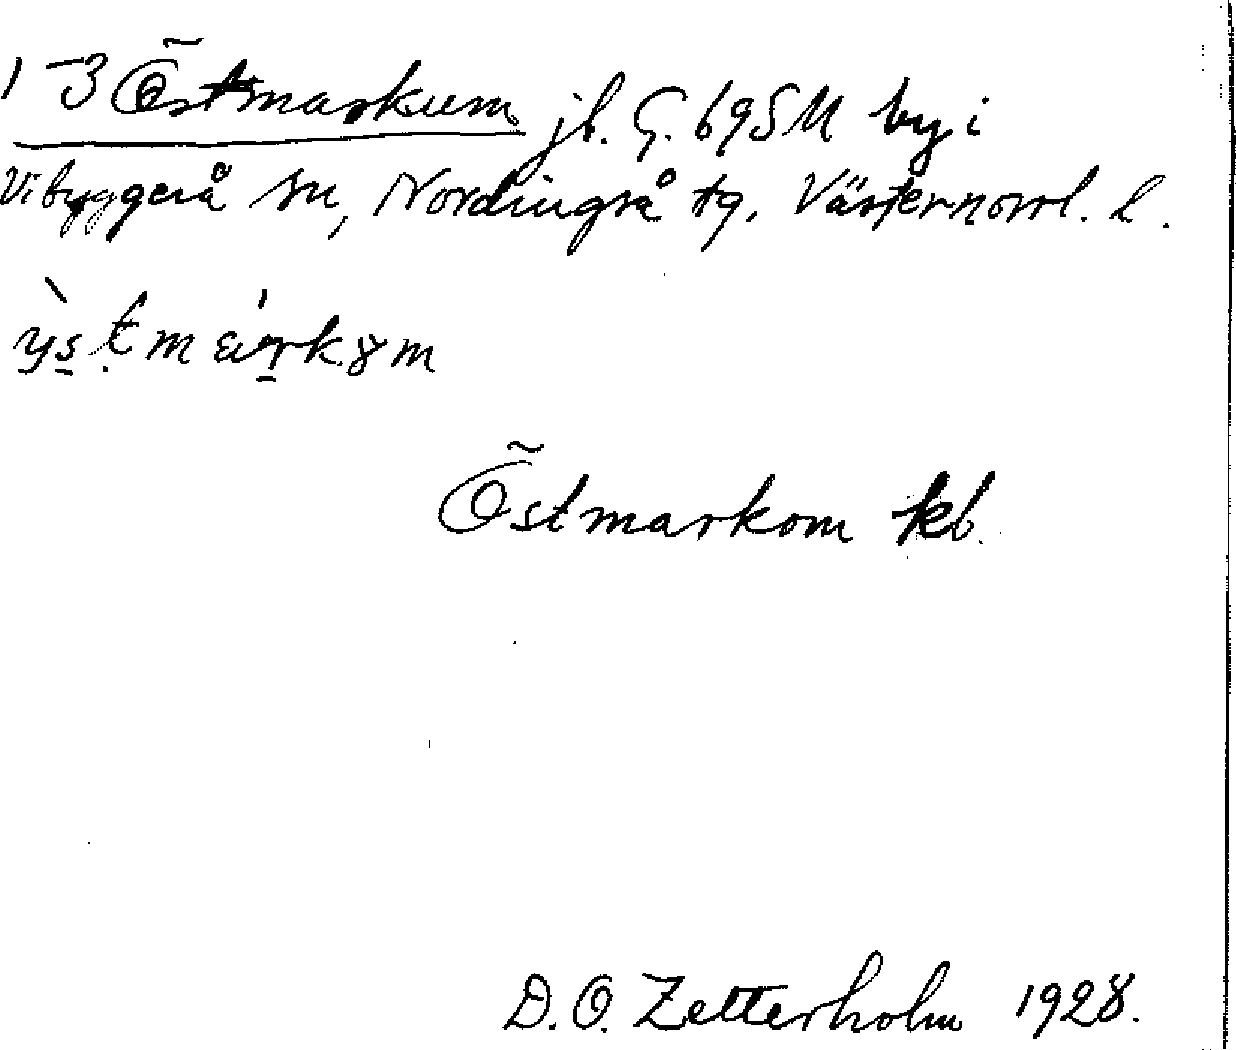 1-3 Õstmarkum jb. G. 69 SM by i
Vibyggerå sn, Nordingrå tg. Västernorrl. l.
Õstmarkom kb.
D. O. Zetterholm 1928.